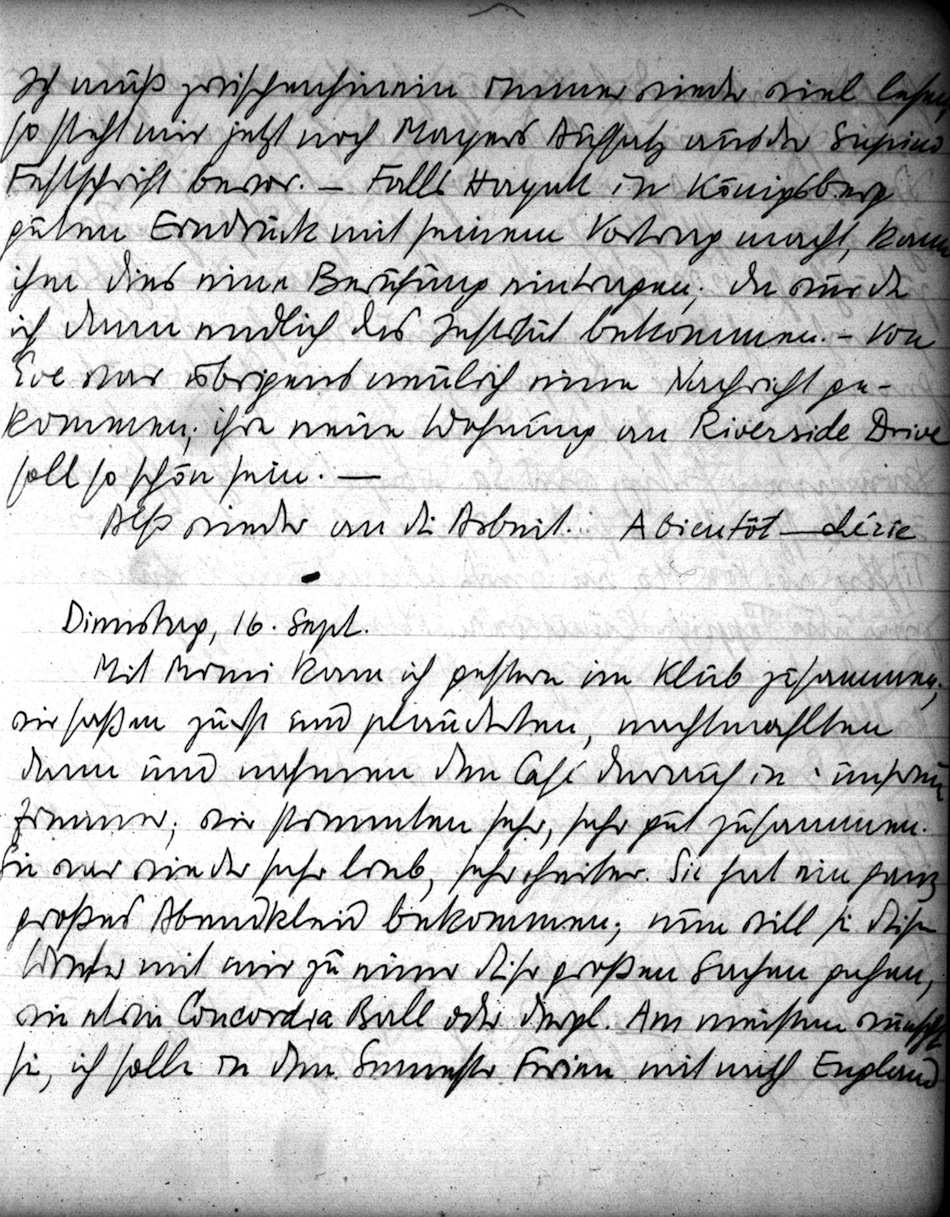 Ich muß zwischenhinein immer wieder viel lesen
so steht mir jetzt noch Mayers Aufsatz aus der
Festschrift bevor. — Falls Hayek in Königsberg
guten Eindruck mit seinem Vortrag macht, kann
ihm dies eine Berufung eintragen; da würde
ich dann endlich das Institut bekommen. – Von
Eve war übrigens neulich eine Nachricht ge-
kommen; ihre neue Wohnung am Riverside Drive
soll so schön sein. —
Also wieder an die Arbeit. A bientôt — chérie
Dienstag, 16. Sept.
Mit kam ich gestern im Klub zusammen;
wir saßen zuerst und plauderten, nachtmahlten
dann und nahmen den Café darauf in unserem
Zimmer; wir stimmten sehr, sehr gut zusammen.
Sie war wieder sehr lieb, sehr heiter. Sie hat ein ganz
großes Abendkleid bekommen; nun will sie diesen
Winter mit mir zu einer dieser großen Sachen gehen,
wie etwa Concordia Ball oder dergl. Am meisten wünscht
sie, ich solle in den Semester Ferien mit nach England